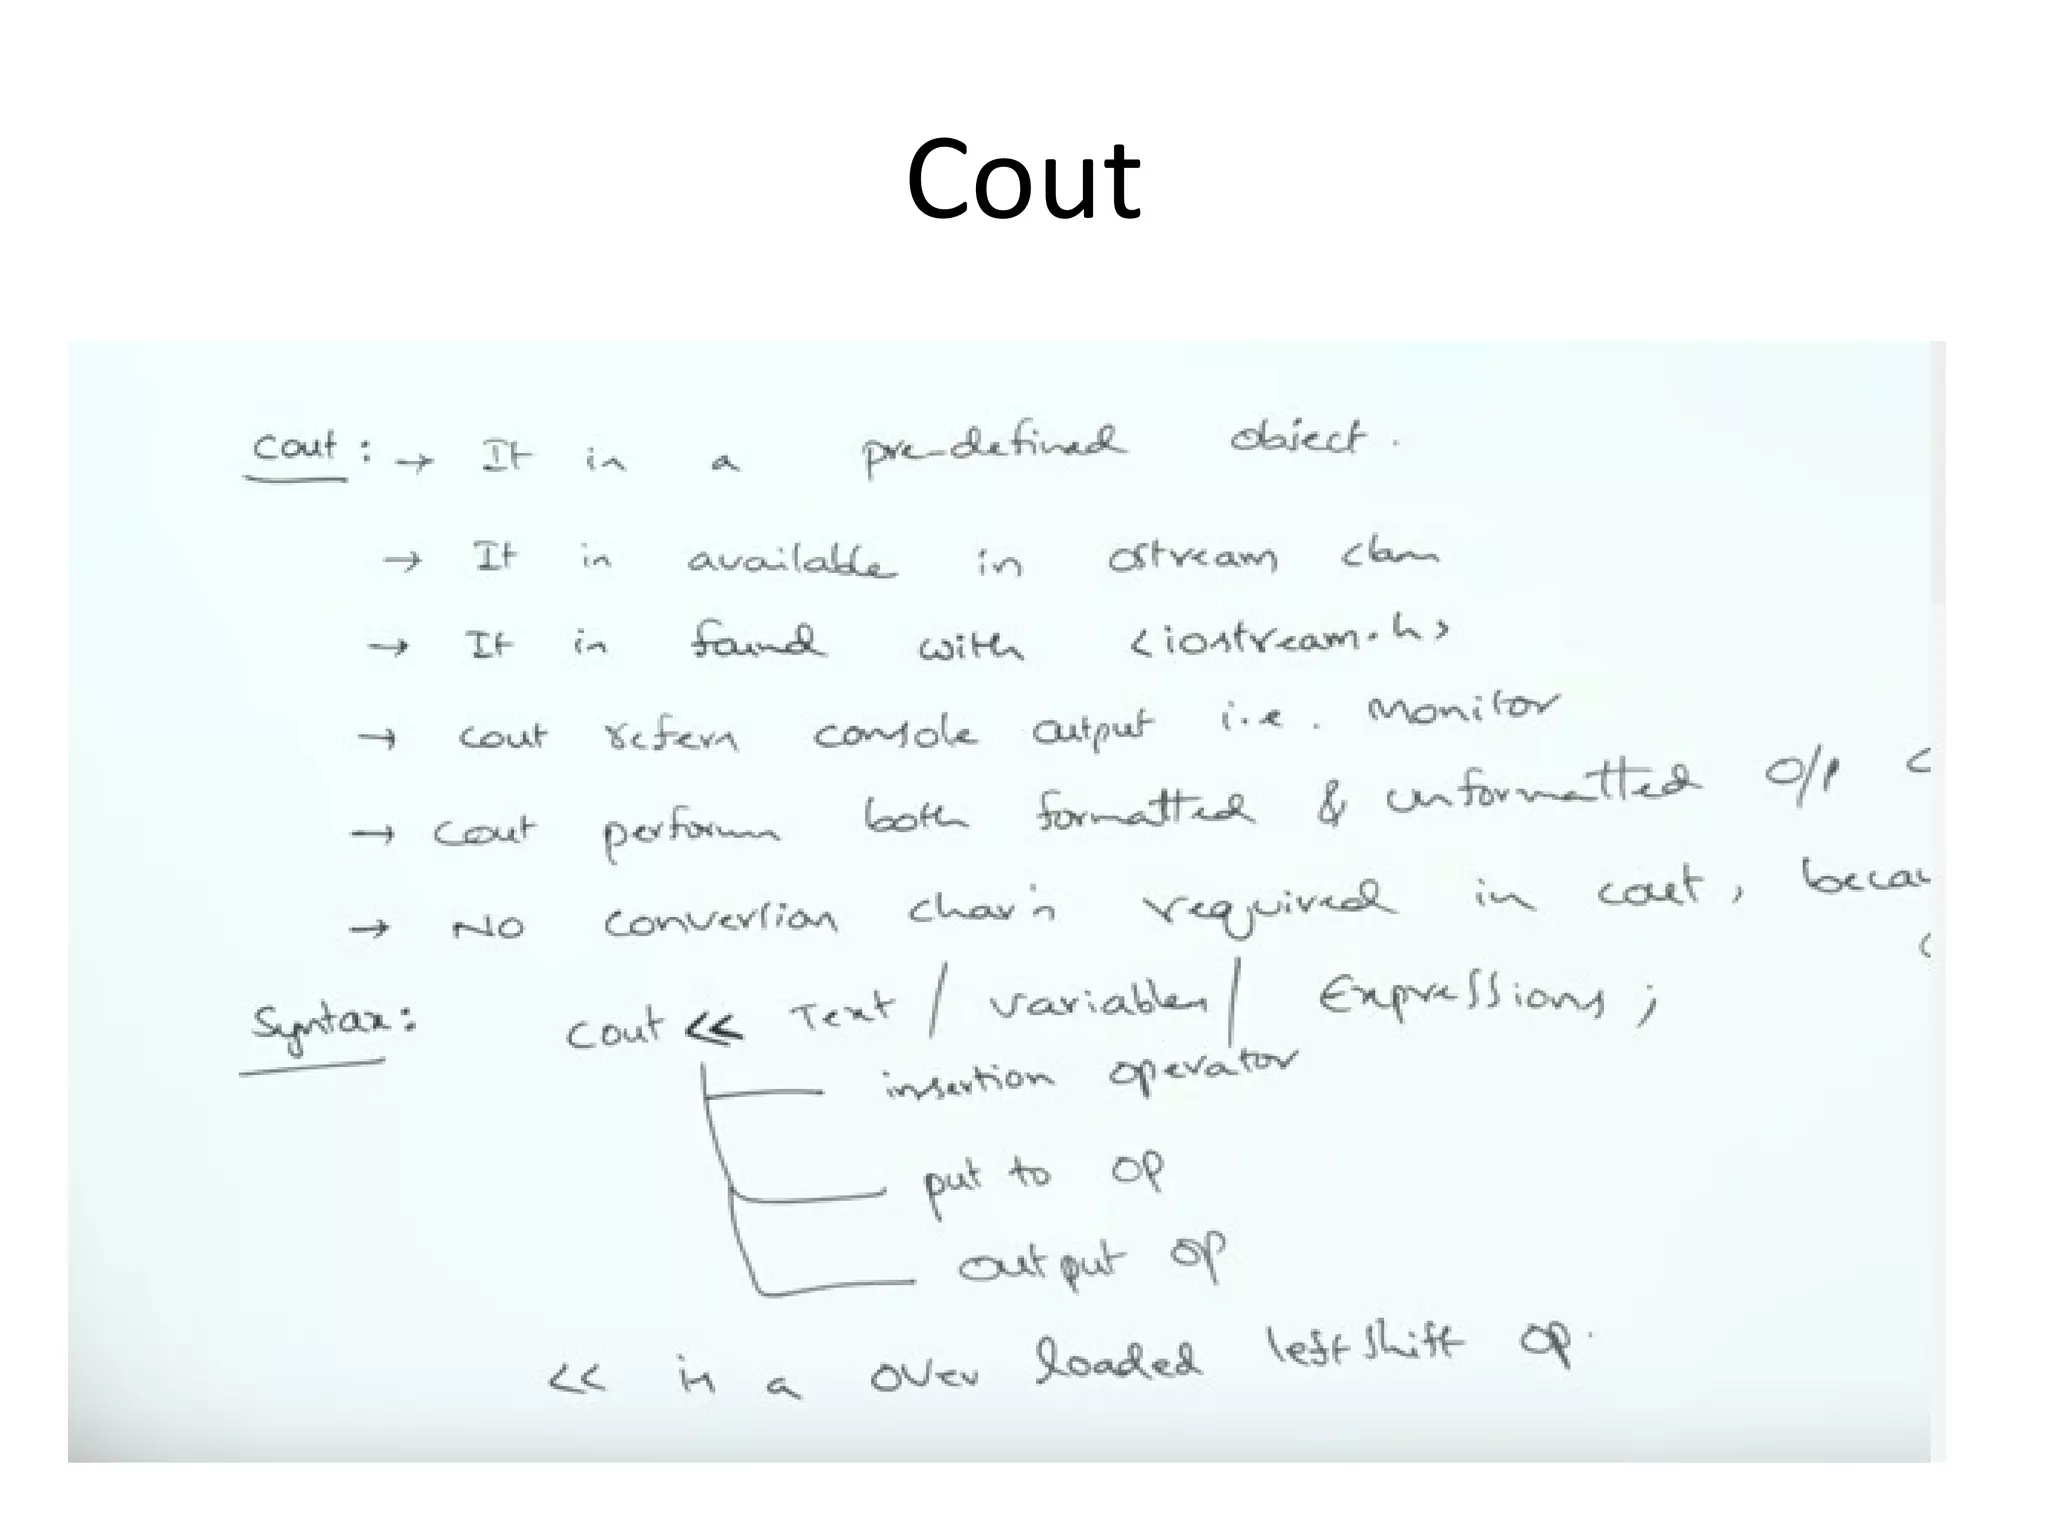 Cout
Cout : → It is a pre-defined object.
→ It is available in ostream class
→ It is found with <iostream.h>
→ cout refers console output i.e. Monitor
→ cout performs both formatted & unformatted O/P
→ No conversion char's required in cout, becau
Syntax: Cout << Text / variables / Expressions ;
insertion operator
put to op
output op
<< is a over loaded left shift op.